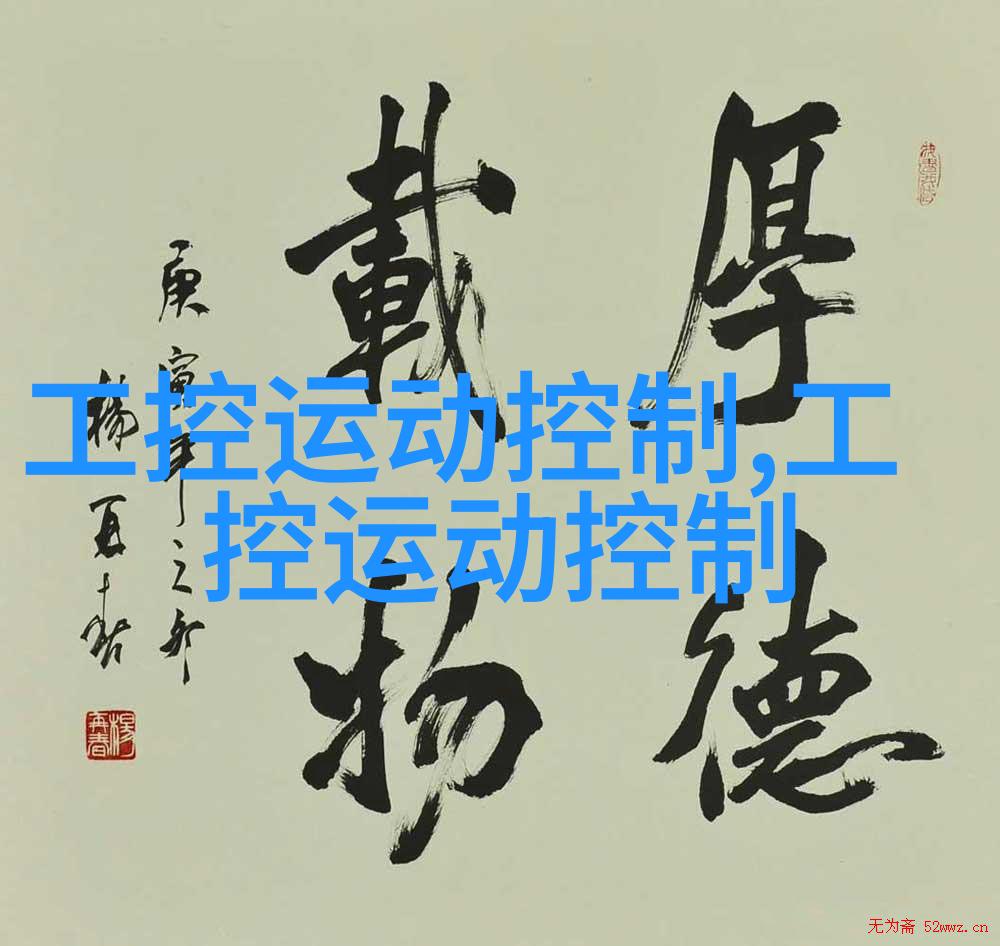 厚德
載物
庚寅年之
楊再春
楊再春
工控运动控制,工
控运动控制
无为斋 52wwz.cn